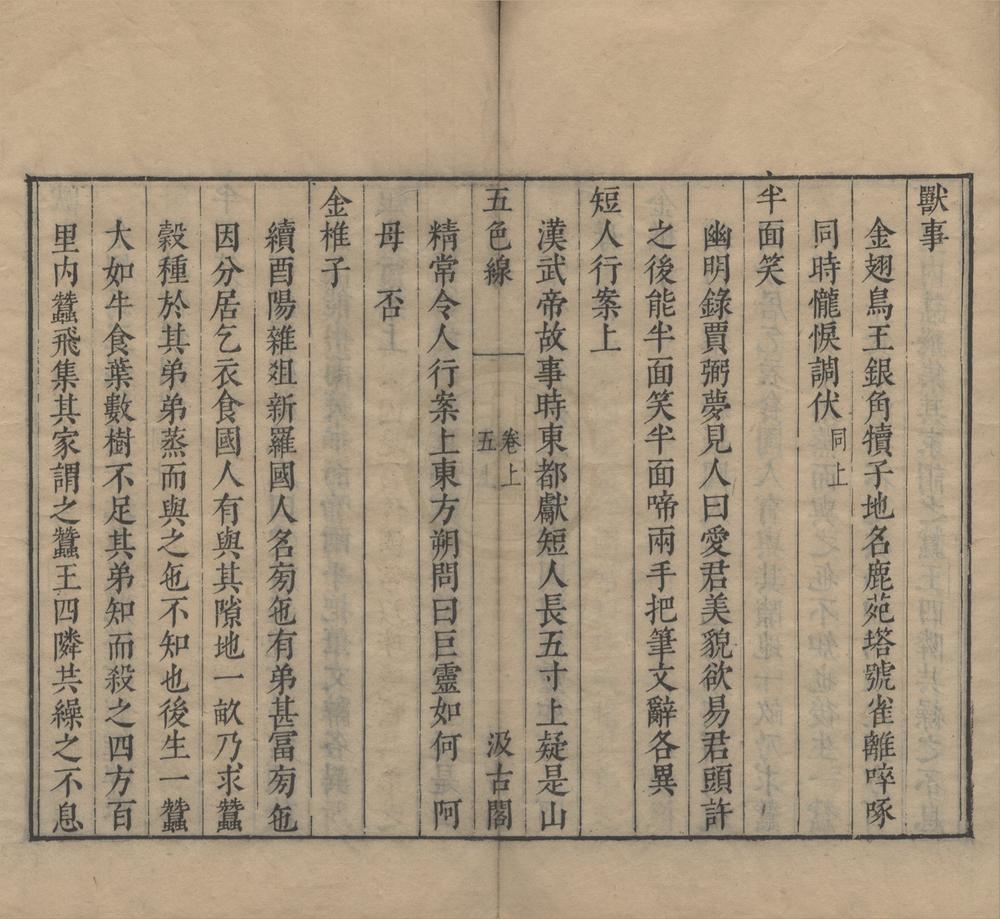 獸事
金翅鳥王銀角犢子地名鹿苑塔號雀離啐啄
同時儱悷調伏同上
半面笑
幽明錄賈弼夢見人曰愛君美貌欲易君頭許
之後能半面笑半面啼兩手把筆文辭各異
短人行案上
漢武帝故事時東都獻短人長五寸上疑是山
五色線 卷上 五 汲古閣
精常令人行案上東方朔問曰巨靈如何阿
母否
金椎子
續酉陽雜俎新羅國人名㫄㐌有弟甚冨㫄㐌
因分居乞衣食國人有與其隙地一畝乃求蠶
穀種於其弟弟蒸而與之㐌不知也後生一蠶
大如牛食葉數樹不足其弟知而殺之四方百
里內蠶飛集其家謂之蠶王四隣共繰之不息